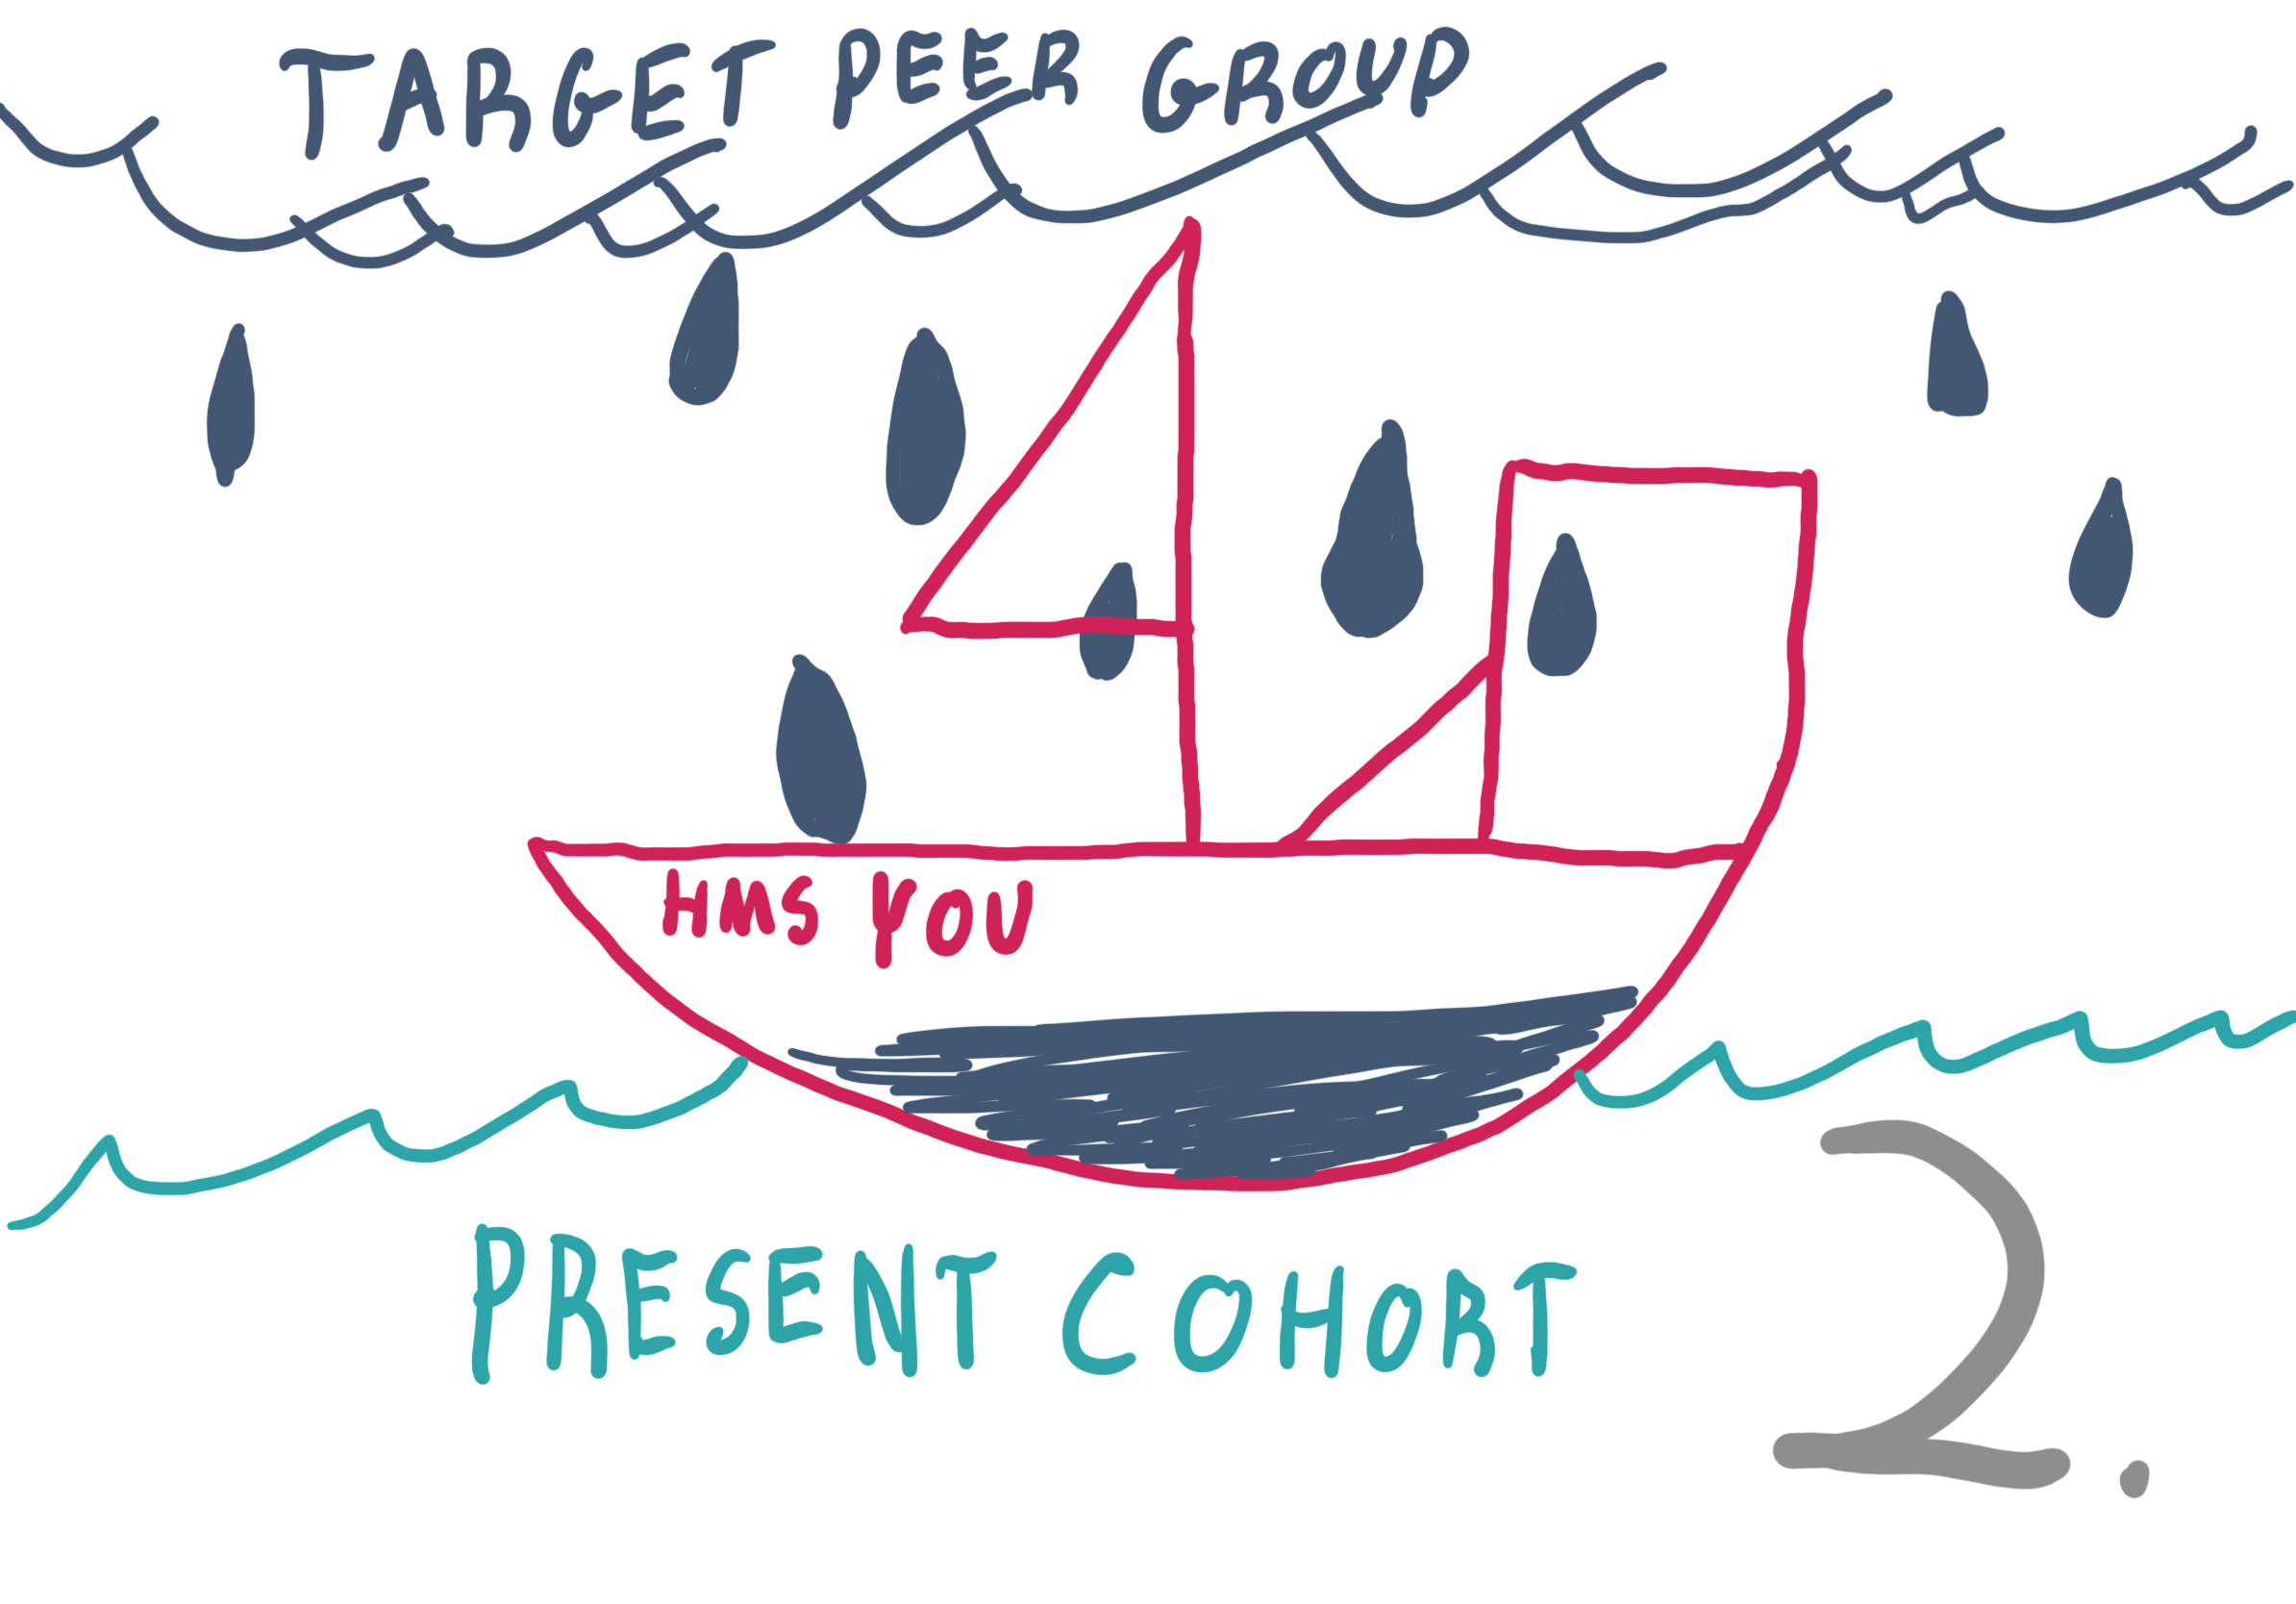 TARGET PEER GROUP
HMS YOU
PRESENT COHORT
2.